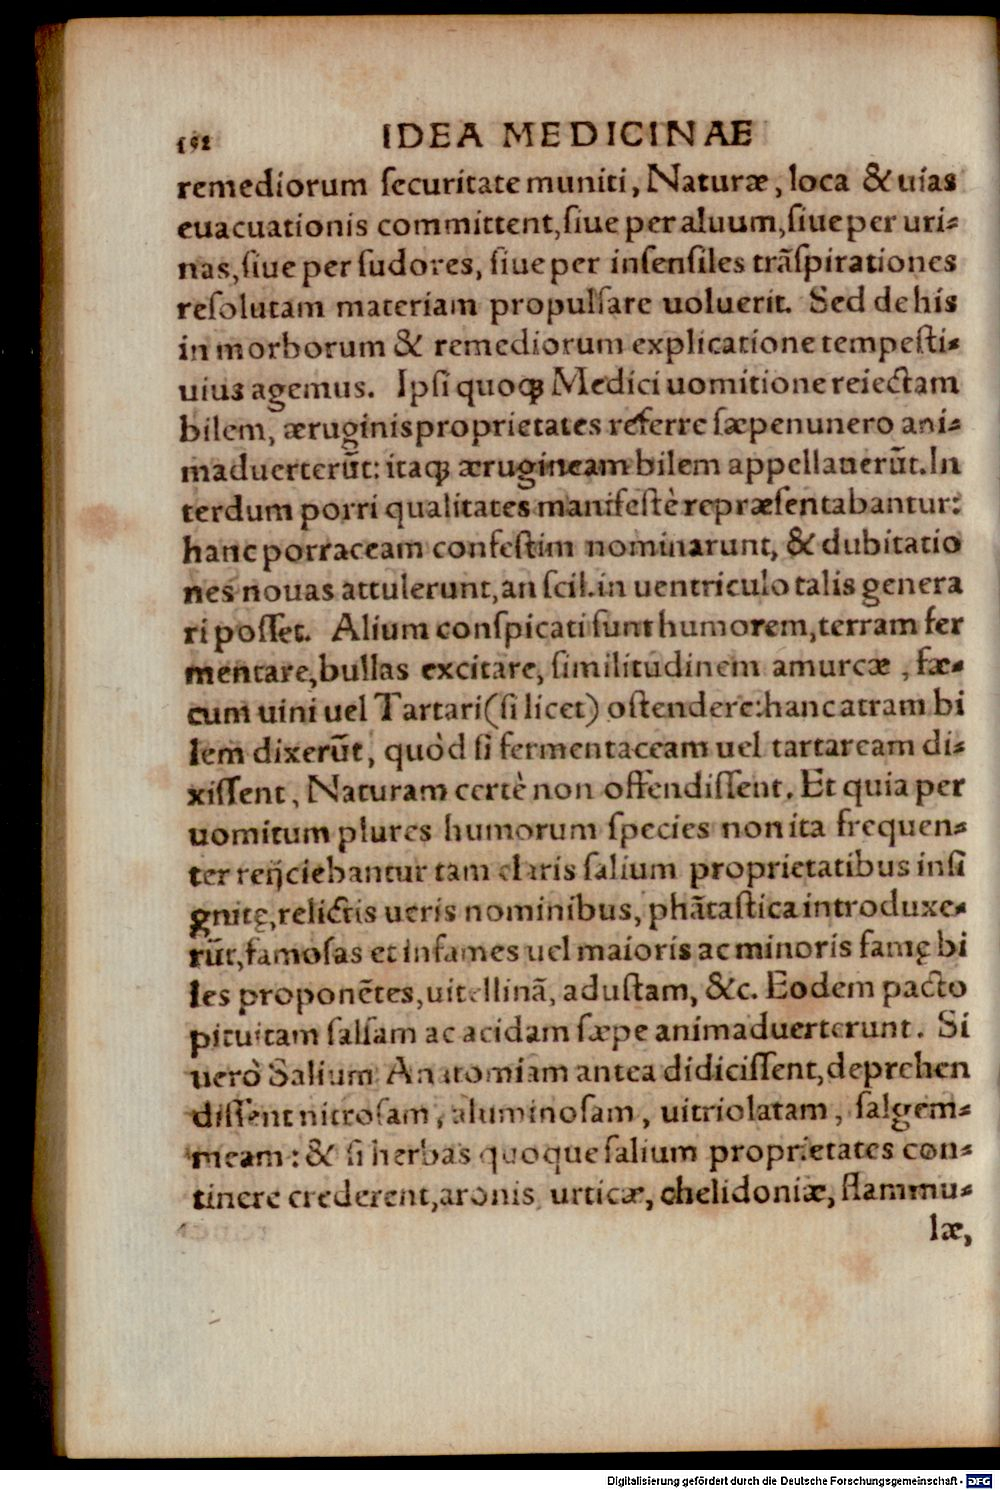 192 IDEA MEDICINAE
remediorum ſecuritate muniti, Naturæ, loca & uias
euacuationis committent, ſiue per aluum, ſiue per uri-
nas, ſiue per ſudores, ſiue per inſenſiles trãſpirationes
reſolutam materiam propulſare uoluerit. Sed de his
in morborum & remediorum explicatione tempeſti-
uius agemus. Ipſi quoq; Medici uomitione reiectam
bilem, æruginis proprietates referre ſæpenunero ani-
maduerterũt: itaq; ærugineam bilem appellauerũt. In
terdum porri qualitates manifeſtè repræſentabantur:
hanc porraceam confeſtim nominarunt, & dubitatio
nes nouas attulerunt, an ſcil. in uentriculo talis genera
ri poſſet. Alium conſpicati ſunt humorem, terram fer
mentare, bullas excitare, ſimilitudinem amurcæ, fæ-
cum uini uel Tartari (ſi licet) oſtendere: hanc atram bi
lem dixerũt, quòd ſi fermentaceam uel tartaream di-
xiſſent, Naturam certè non offendiſſent. Et quia per
uomitum plures humorum ſpecies non ita frequen-
ter reijciebantur tam claris ſalium proprietatibus inſi
gnitę, relictis ueris nominibus, phãtaſtica introduxe-
rũt, famoſas et infames uel maioris ac minoris famę bi
les proponẽtes, uitellinã, aduſtam, &c. Eodem pacto
pituitam ſalſam ac acidam ſæpe animaduerterunt. Si
uerò Salium Anatomiam antea didiciſſent, deprehen
diſſent nitroſam, aluminoſam, uitriolatam, ſalgem-
meam: & ſi herbas quoque ſalium proprietates con-
tinere crederent, aronis, urticæ, chelidoniæ, flammu-
læ,
Digitalisierung gefördert durch die Deutsche Forschungsgemeinschaft - DFG